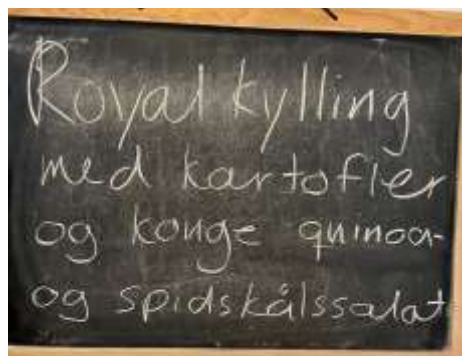 Royal kylling
med kartofler
og konge quinoa-
og spidskålssalat